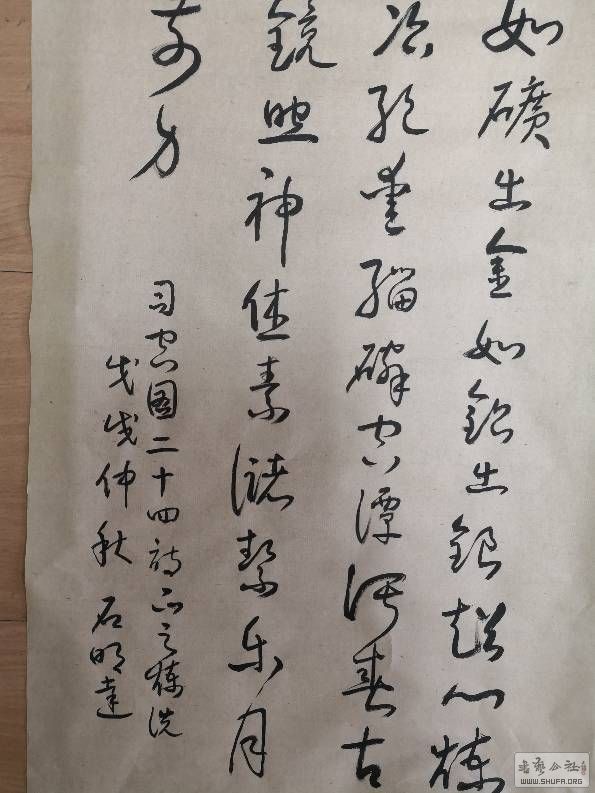 如礦出金如鉛出銀超心煉
冶絕愛緇磷空潭瀉春古
鏡照神体素儲絜乘月
前身
司空图二十四詩品之煉洗
戊戌仲秋 石明達
书艺公社
WWW.SHUFA.ORG